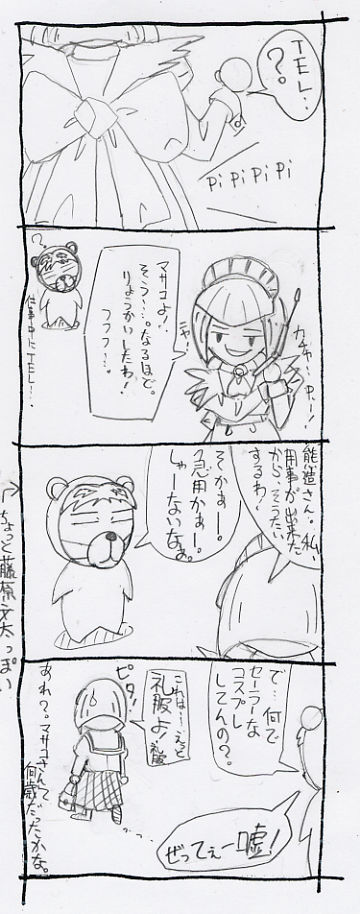 TEL…
?
PiPiPiPi
カチャ…
マサコよ!
そう…。なるほど。
りょうかいしたわ!
フフフ…。
ニヤ!
?
仕事中にTEL…。
能造さん。私、
用事が出来た
から、そうたい
するわ!
そーかぁー。
急用かぁー。
しゃーないなぁ。
ちょっと藤原文太っぽい
で…何で
セーラーな
コスプレ
してんの?。
これは…えっと
礼服よ!礼服
ピタ!
ぜってぇー嘘!
あれ?。マサコさんて
何歳だったかな。